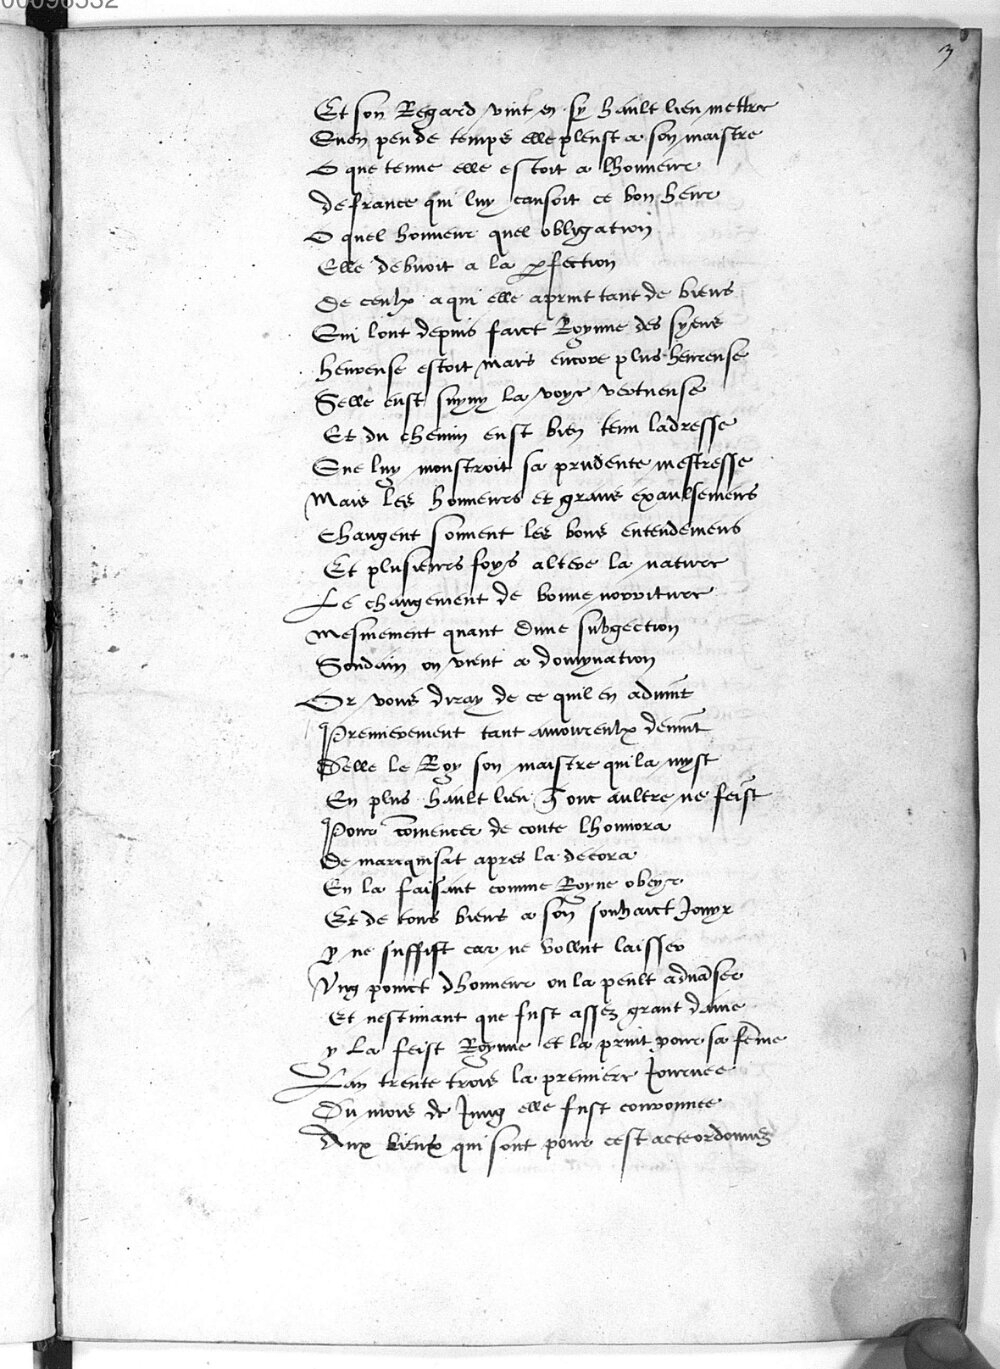 00096532
3
Et son Regard vint en sy hault lieu mettre
Quen peu de temps elle pleust a son maistre
O que tenue elle estoit a lhonneur
De france qui luy causoit ce bon heur
O quel honneur quel obligation
Elle debvoit a la pfection
De ceulx a qui elle aprint tant de biens
Qui lont depuis faict Royne des syens
heureuse estoit mais encore plus heureuse
Selle eust suyuy la voye vertueuse
Et du chemin eust bien tenu ladresse
Que luy monstroit sa prudente mestresse
Mais les honneurs et grans exaulsemens
Changent souuent les bons entendemens
Et plusieurs foys altere la nature
Le changement de bonne norriture
Mesmement quant dune subgection
Soudain on vient a domynation
Or vous diray de ce quil en aduint
Premierement tant amoureulx deuint
Delle le Roy son maistre qui la myst
En plus hault lieu q onc aultre ne feist
Pour comencer de conte lhonnora
De marquisat apres la decora
En la faisant comme Royne obeyr
Et de tous biens a son souhaict Jouyr
y ne suffist car ne vollut laisser
Vng poinct dhonneur ou la peult aduaser
Et nestimant que fust assez grant dame
y la feist Royne et la print pour sa feme
Lan trente trois la premiere Journee
Du mois de Juing elle fust couronnee
Aux lieux qui sont pour cest acte ordonnez